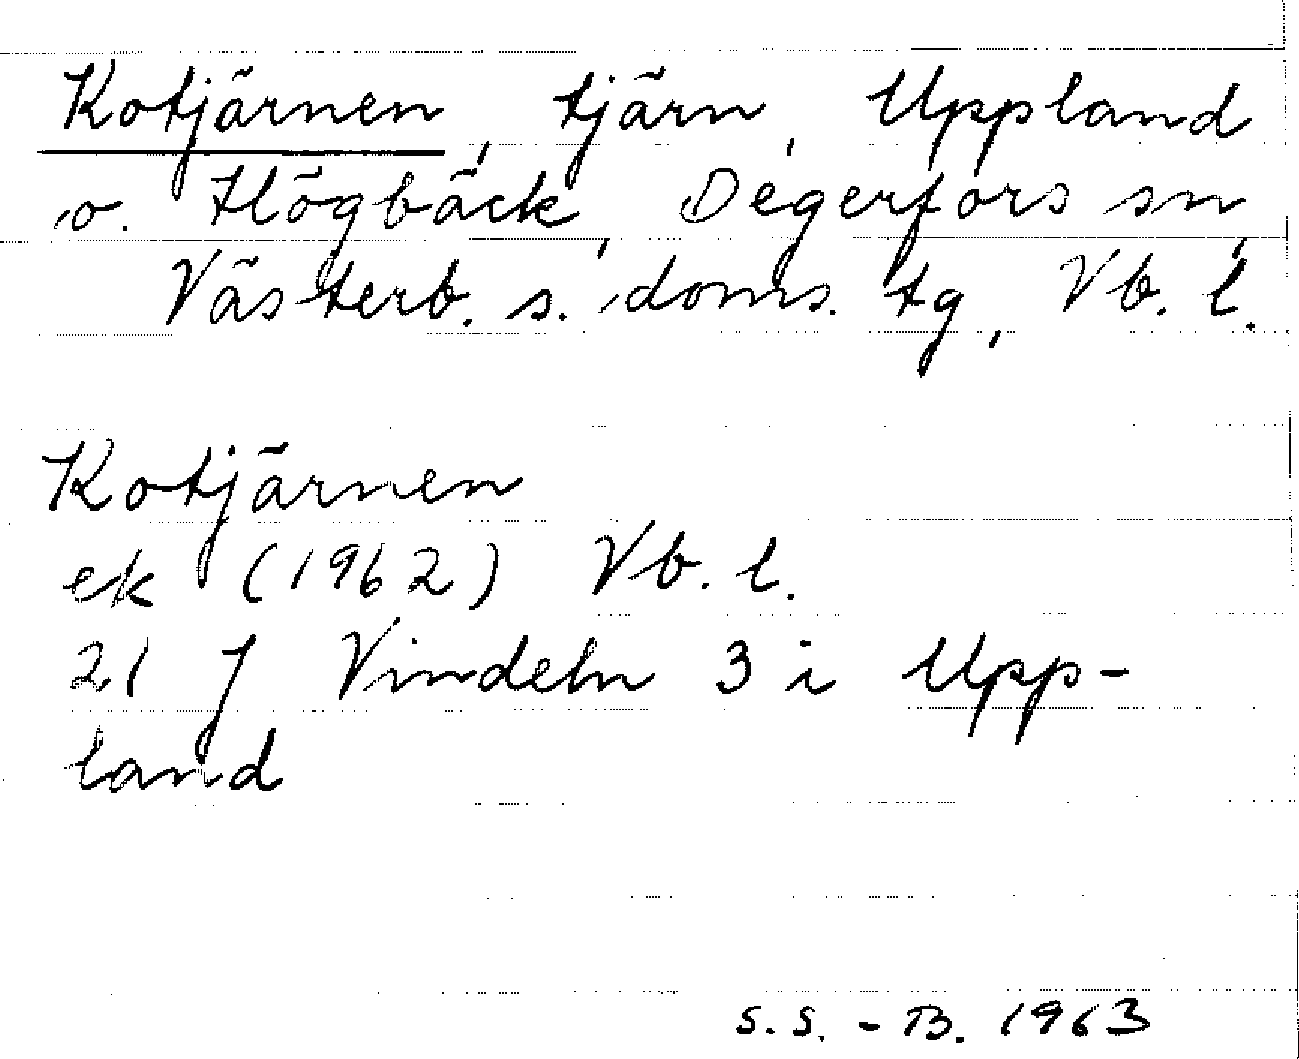 Kotjärnen, tjärn, Uppland
o. Högbäck, Degerfors sn,
Västerb. s. doms. tg, Vb. l.
Kotjärnen
ek (1962) Vb. l.
21 J Vindeln 3 i Upp-
land
S.S.-B. 1963